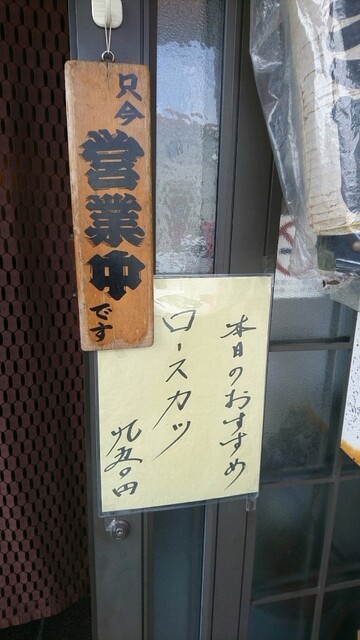 只今
営業中
です
本日のおすすめ
ロースカツ
九五〇円